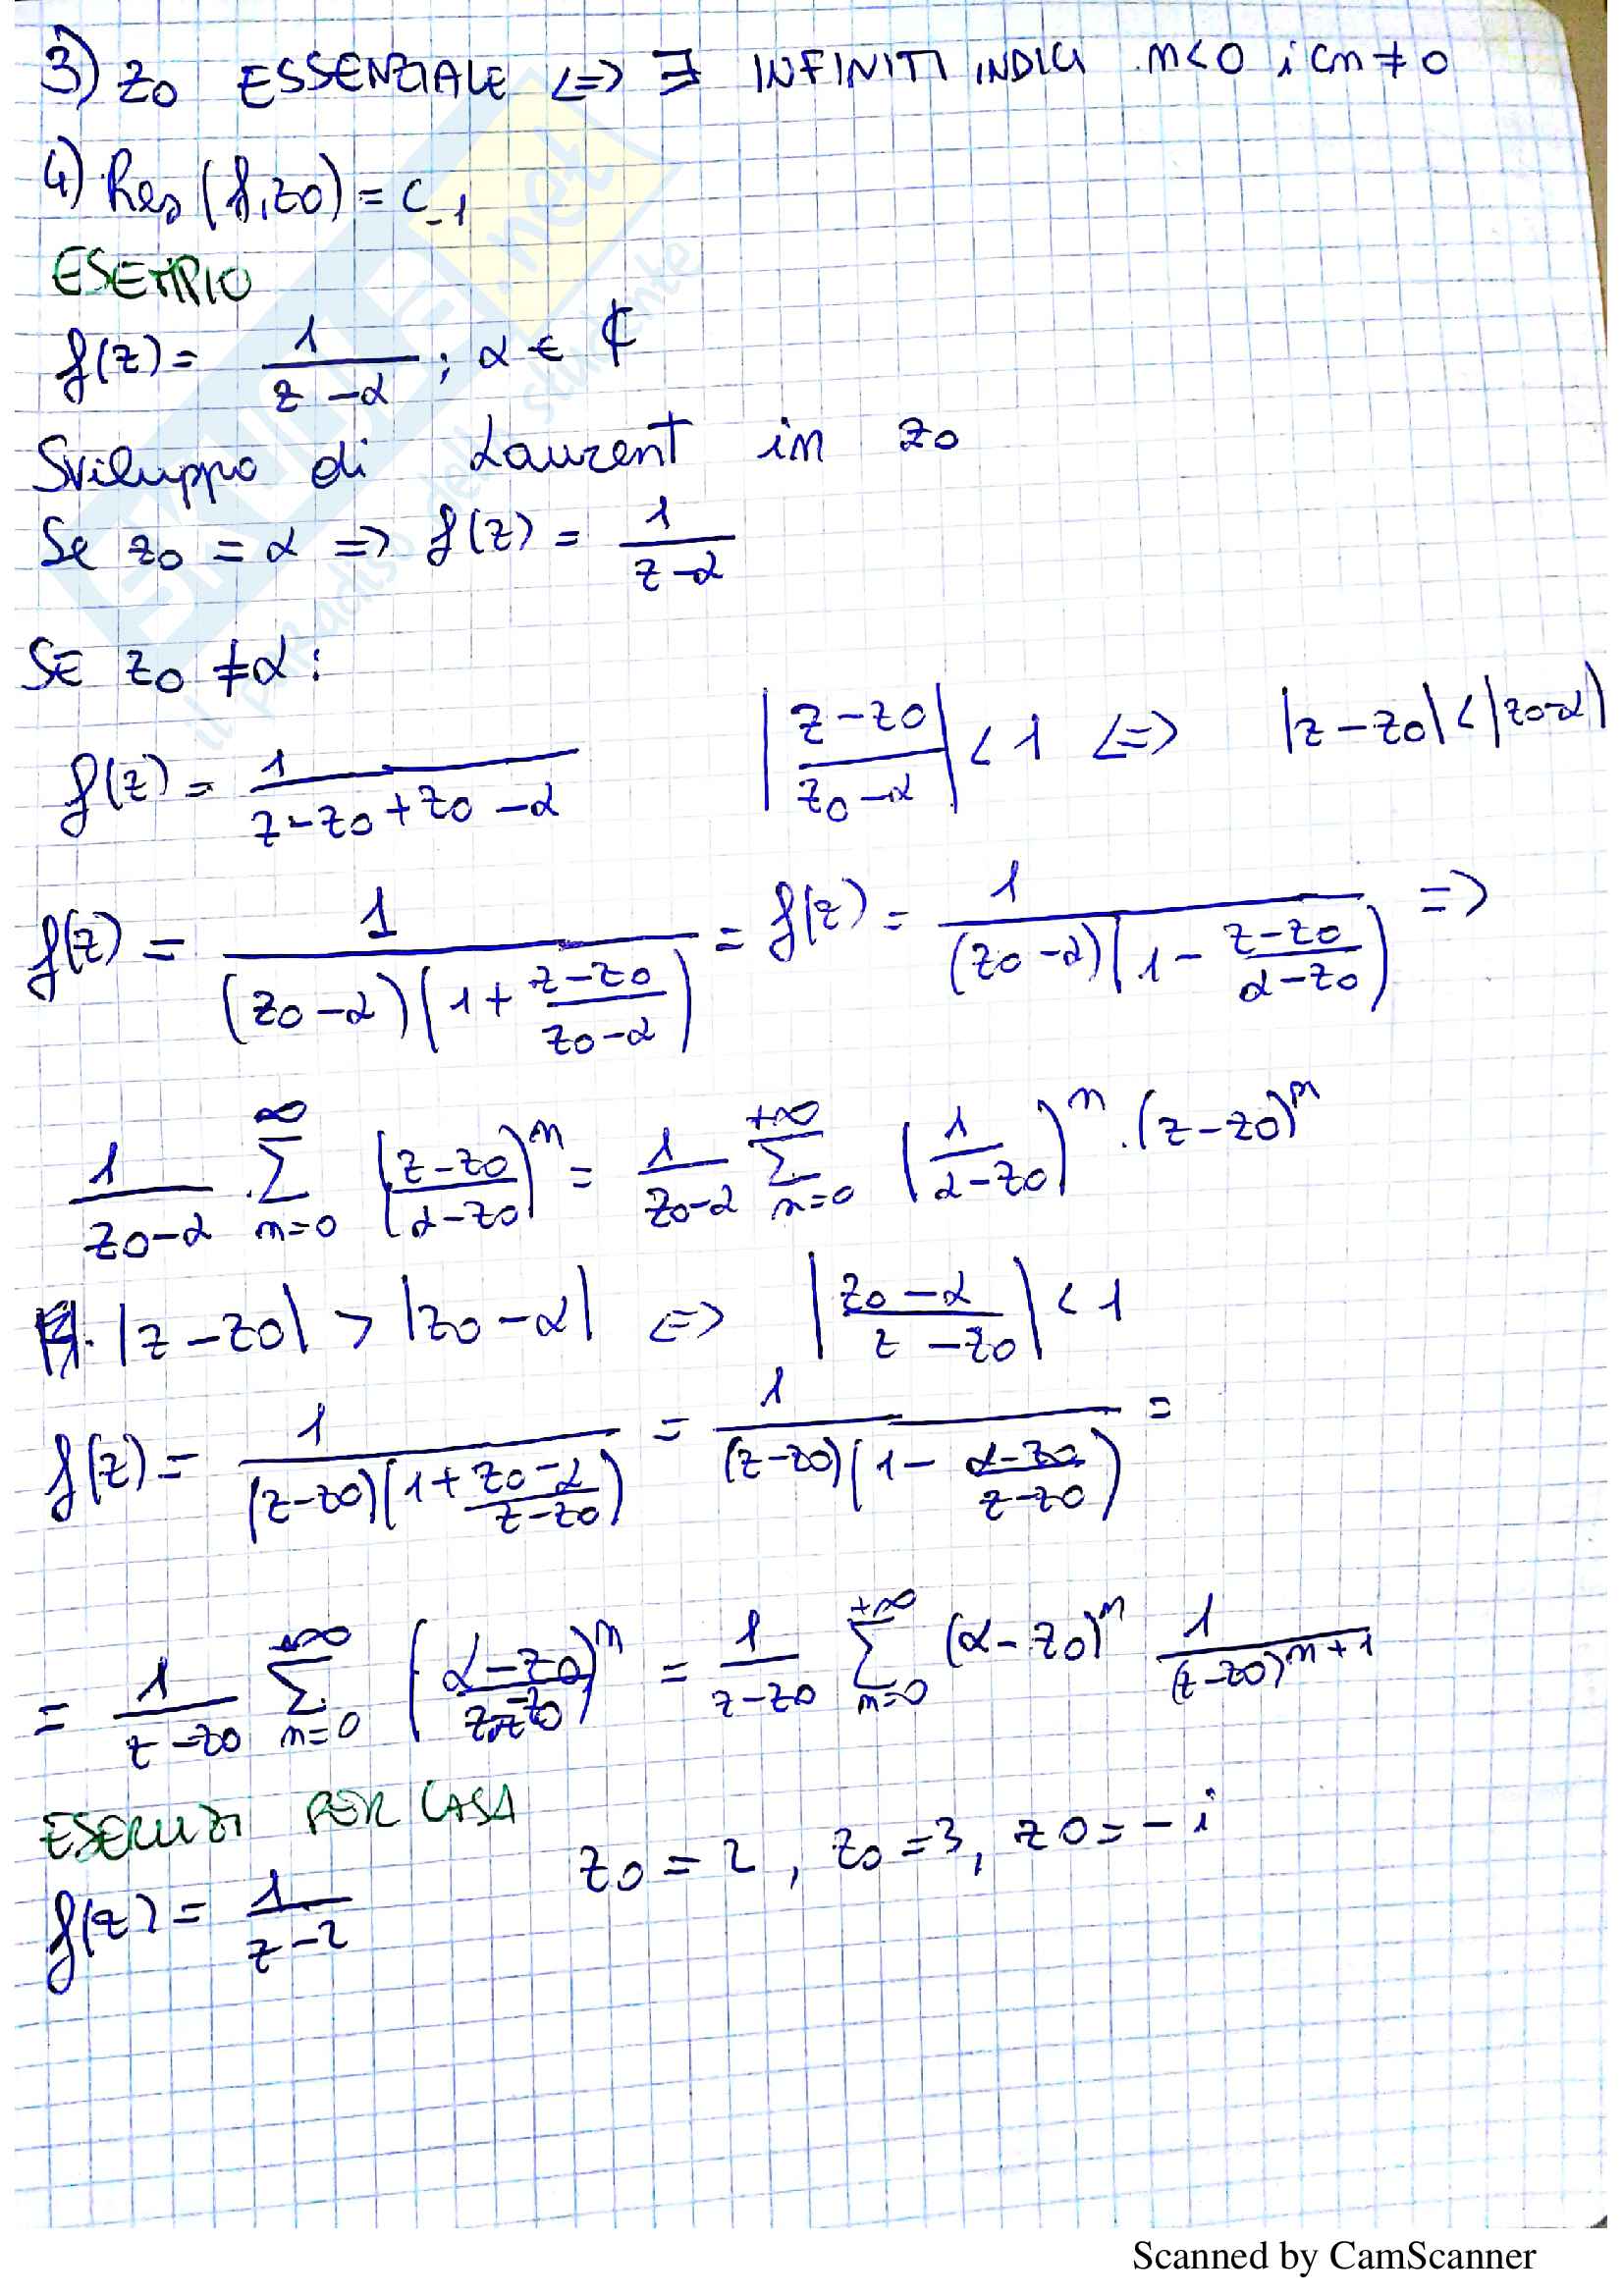 3) z₀ ESSENZIALE <=> ∃ INFINITI INDICI n<0 ; cn ≠ 0
4) Res (f, z0) = c₋₁
ESEMPIO
f(z) = 1/(z-α) ; α ∈ ℂ
Sviluppo di Laurent in z₀
Se z₀ = α => f(z) = 1/(z-α)
SE z₀ ≠ α :
|(z-z0)/(z₀-α)| < 1 <=> |z-z₀| < |z0-α|
f(z) = 1/(z-z₀+z₀-α)
f(z) = 1/((z₀-α)(1+(z-z₀)/(z₀-α))) = f(z) = 1/((z₀-α)(1-(z-z₀)/(α-z₀))) =>
1/(z₀-α) · ∑_{n=0}^{∞} ((z-z₀)/(α-z₀))^n = 1/(z₀-α) ∑_{n=0}^{+∞} (1/(α-z₀))^n · (z-z₀)^n
|z-z₀| > |z₀-α| <=> |(z₀-α)/(z-z₀)| < 1
f(z) = 1/((z-z0)(1+(z₀-α)/(z-z₀))) = 1/((z-z0)(1-(α-z₀)/(z-z₀))) =
= 1/(z-z₀) ∑_{n=0}^{+∞} ((α-z₀)/(z-z₀))^n = 1/(z-z₀) ∑_{n=0}^{+∞} (α-z₀)^n 1/(z-z0)^{n+1}
ESERCIZI PER CASA
f(z) = 1/(z-2) z₀ = 2 , z₀ = 3, z0 = -i
SKUOLA.net
il paradiso dello studente
Scanned by CamScanner